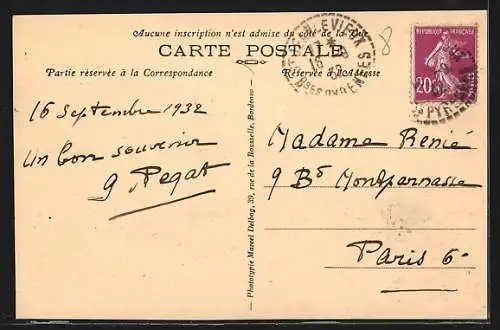 Aucune inscription n'est admise du côté de la Vue
CARTE POSTALE
Partie réservée à la Correspondance
Réservée à l'Adresse
8
REPUBLIQUE FRANÇAISE
20c
16 Septembre 1932
Un bon souvenir
g Pegat
Madame Renié
9 Bd Montparnasse
Paris 6e
Phototypie Marcel Delboy, 39, rue de la Rousselle, Bordeaux